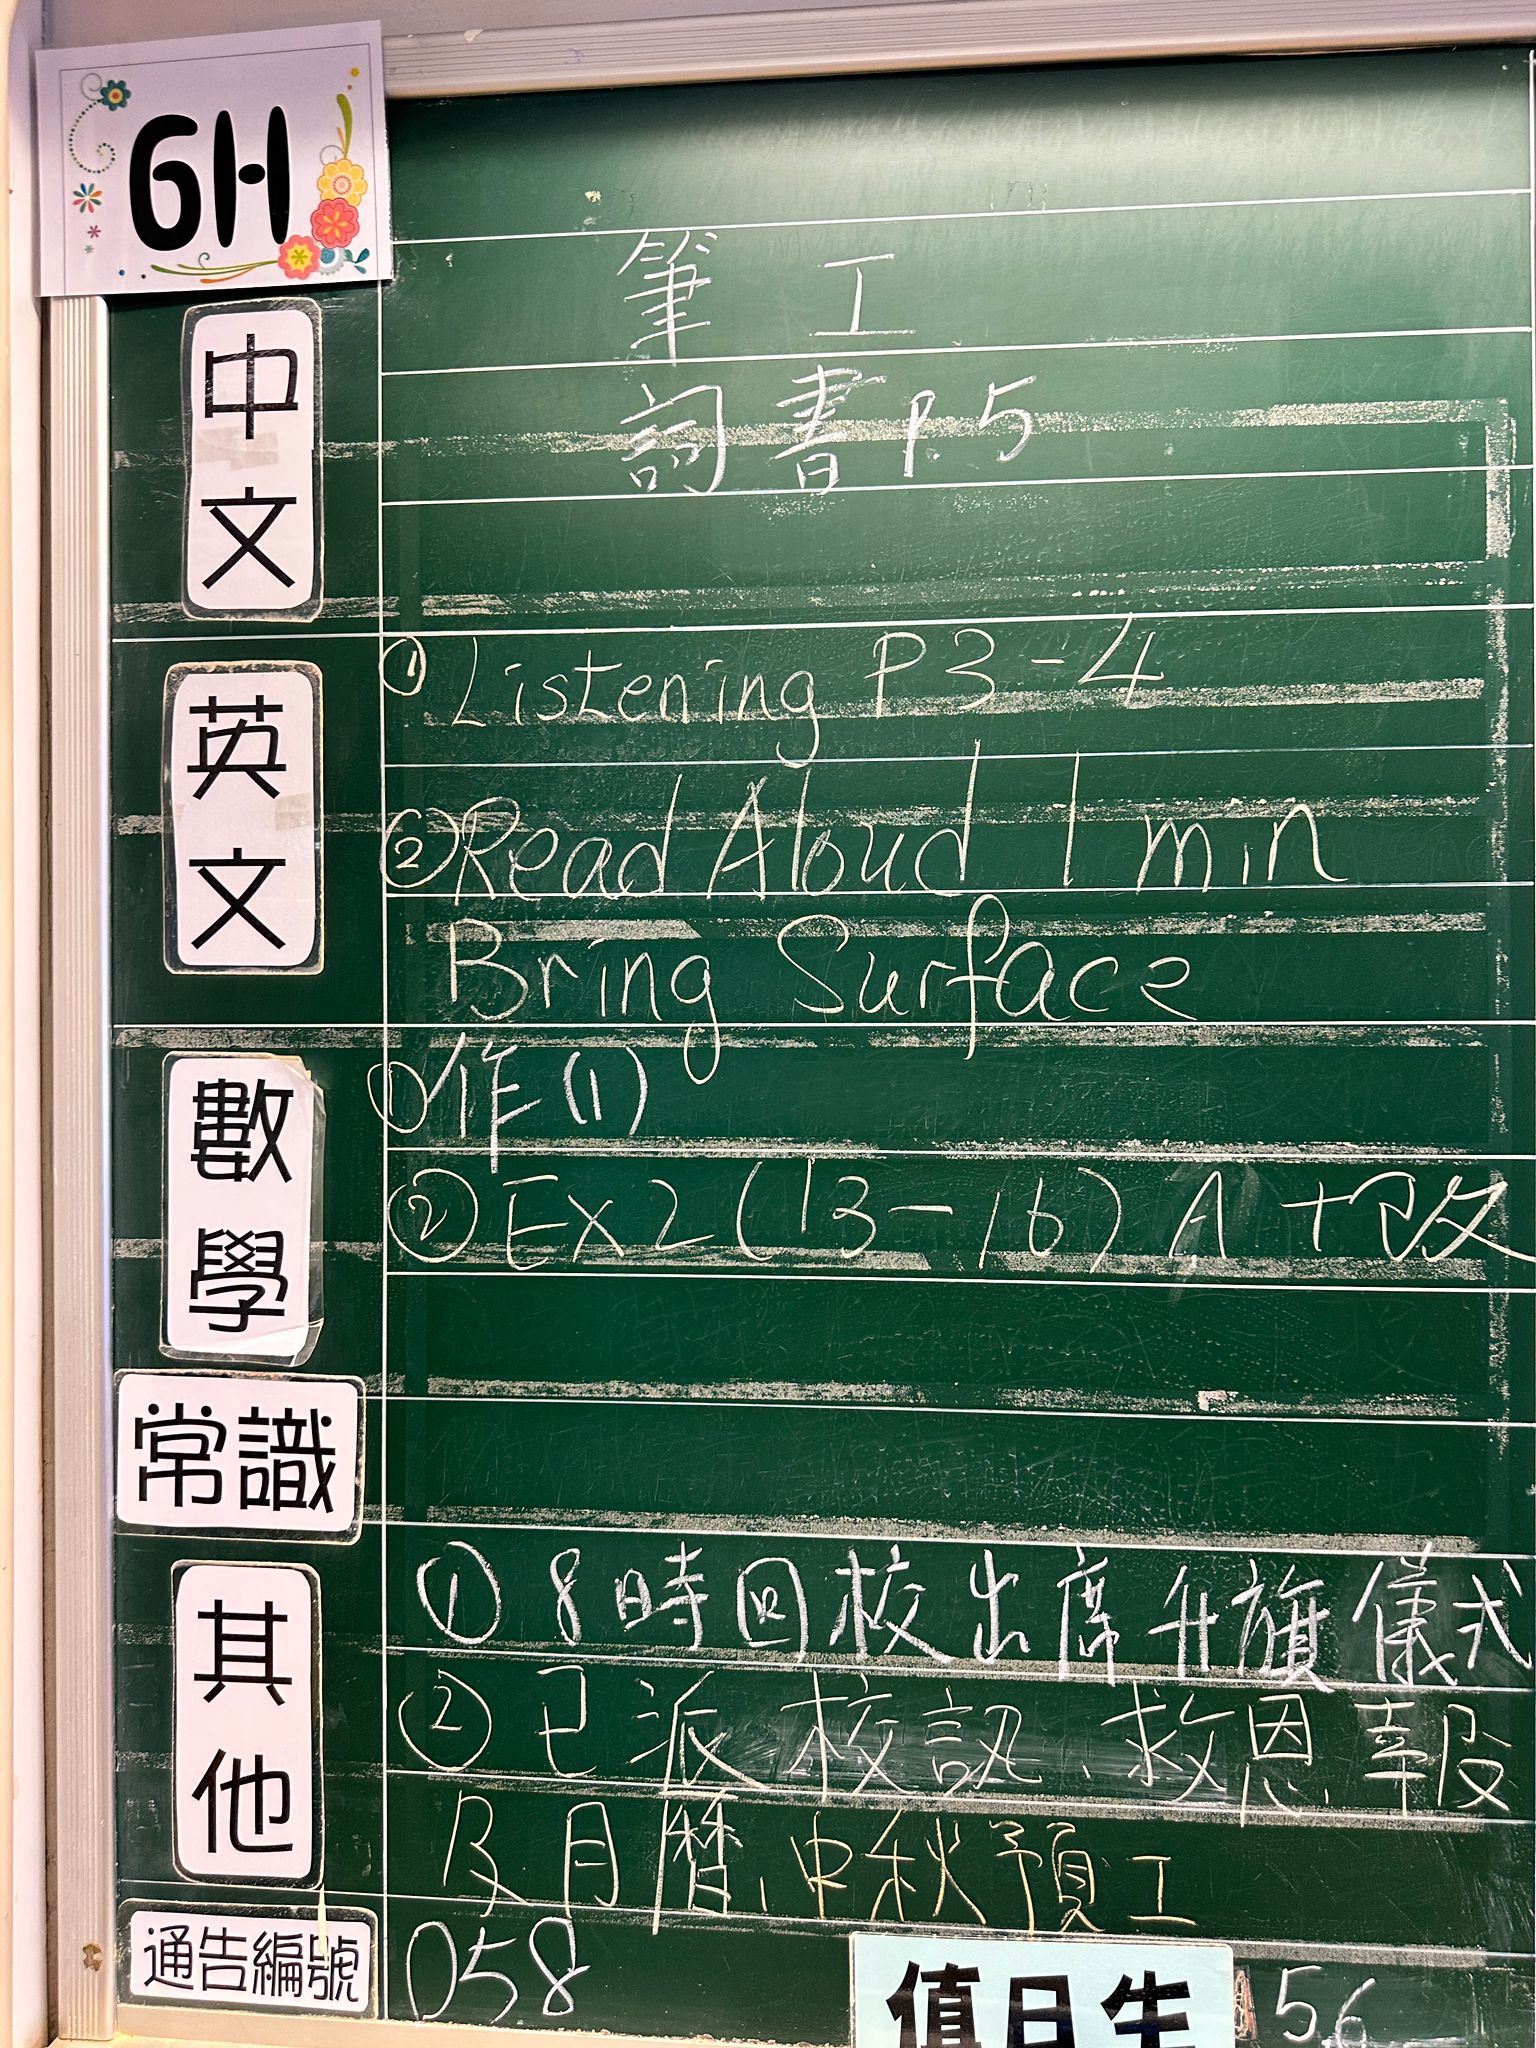 6H
中文
筆 工
詞書 P.5
英文
① Listening P 3-4
② Read Aloud 1 min
Bring Surface
數學
① 作(1)
② Ex2 (13-16) A+改
常識
其他
① 8時回校出席升旗儀式
② 已派校訊、救恩報
及月曆、中秋預工
通告編號
058
值日生
5,6